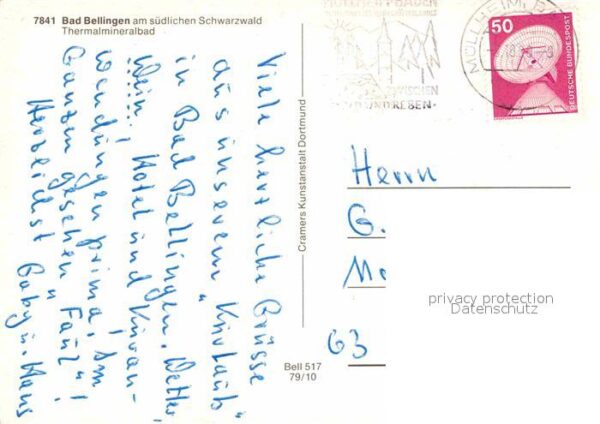 7841 Bad Bellingen am südlichen Schwarzwald
Thermalmineralbad
Viele herzliche Grüsse
aus unserem "Kurlaub"
in Bad Bellingen. Wetter,
Wein, Hotel und Kuran-
wendungen prima, am
Ganzen gesehen "Fänz"!
Herzlichst Gaby u. Hans
Cramers Kunstanstalt Dortmund
Bell 517
79/10
ZWISCHEN
UND REBEN
MÜLLHEIM, BA
50
DEUTSCHE BUNDESPOST
Herrn
G.
Me
63
privacy protection
Datenschutz